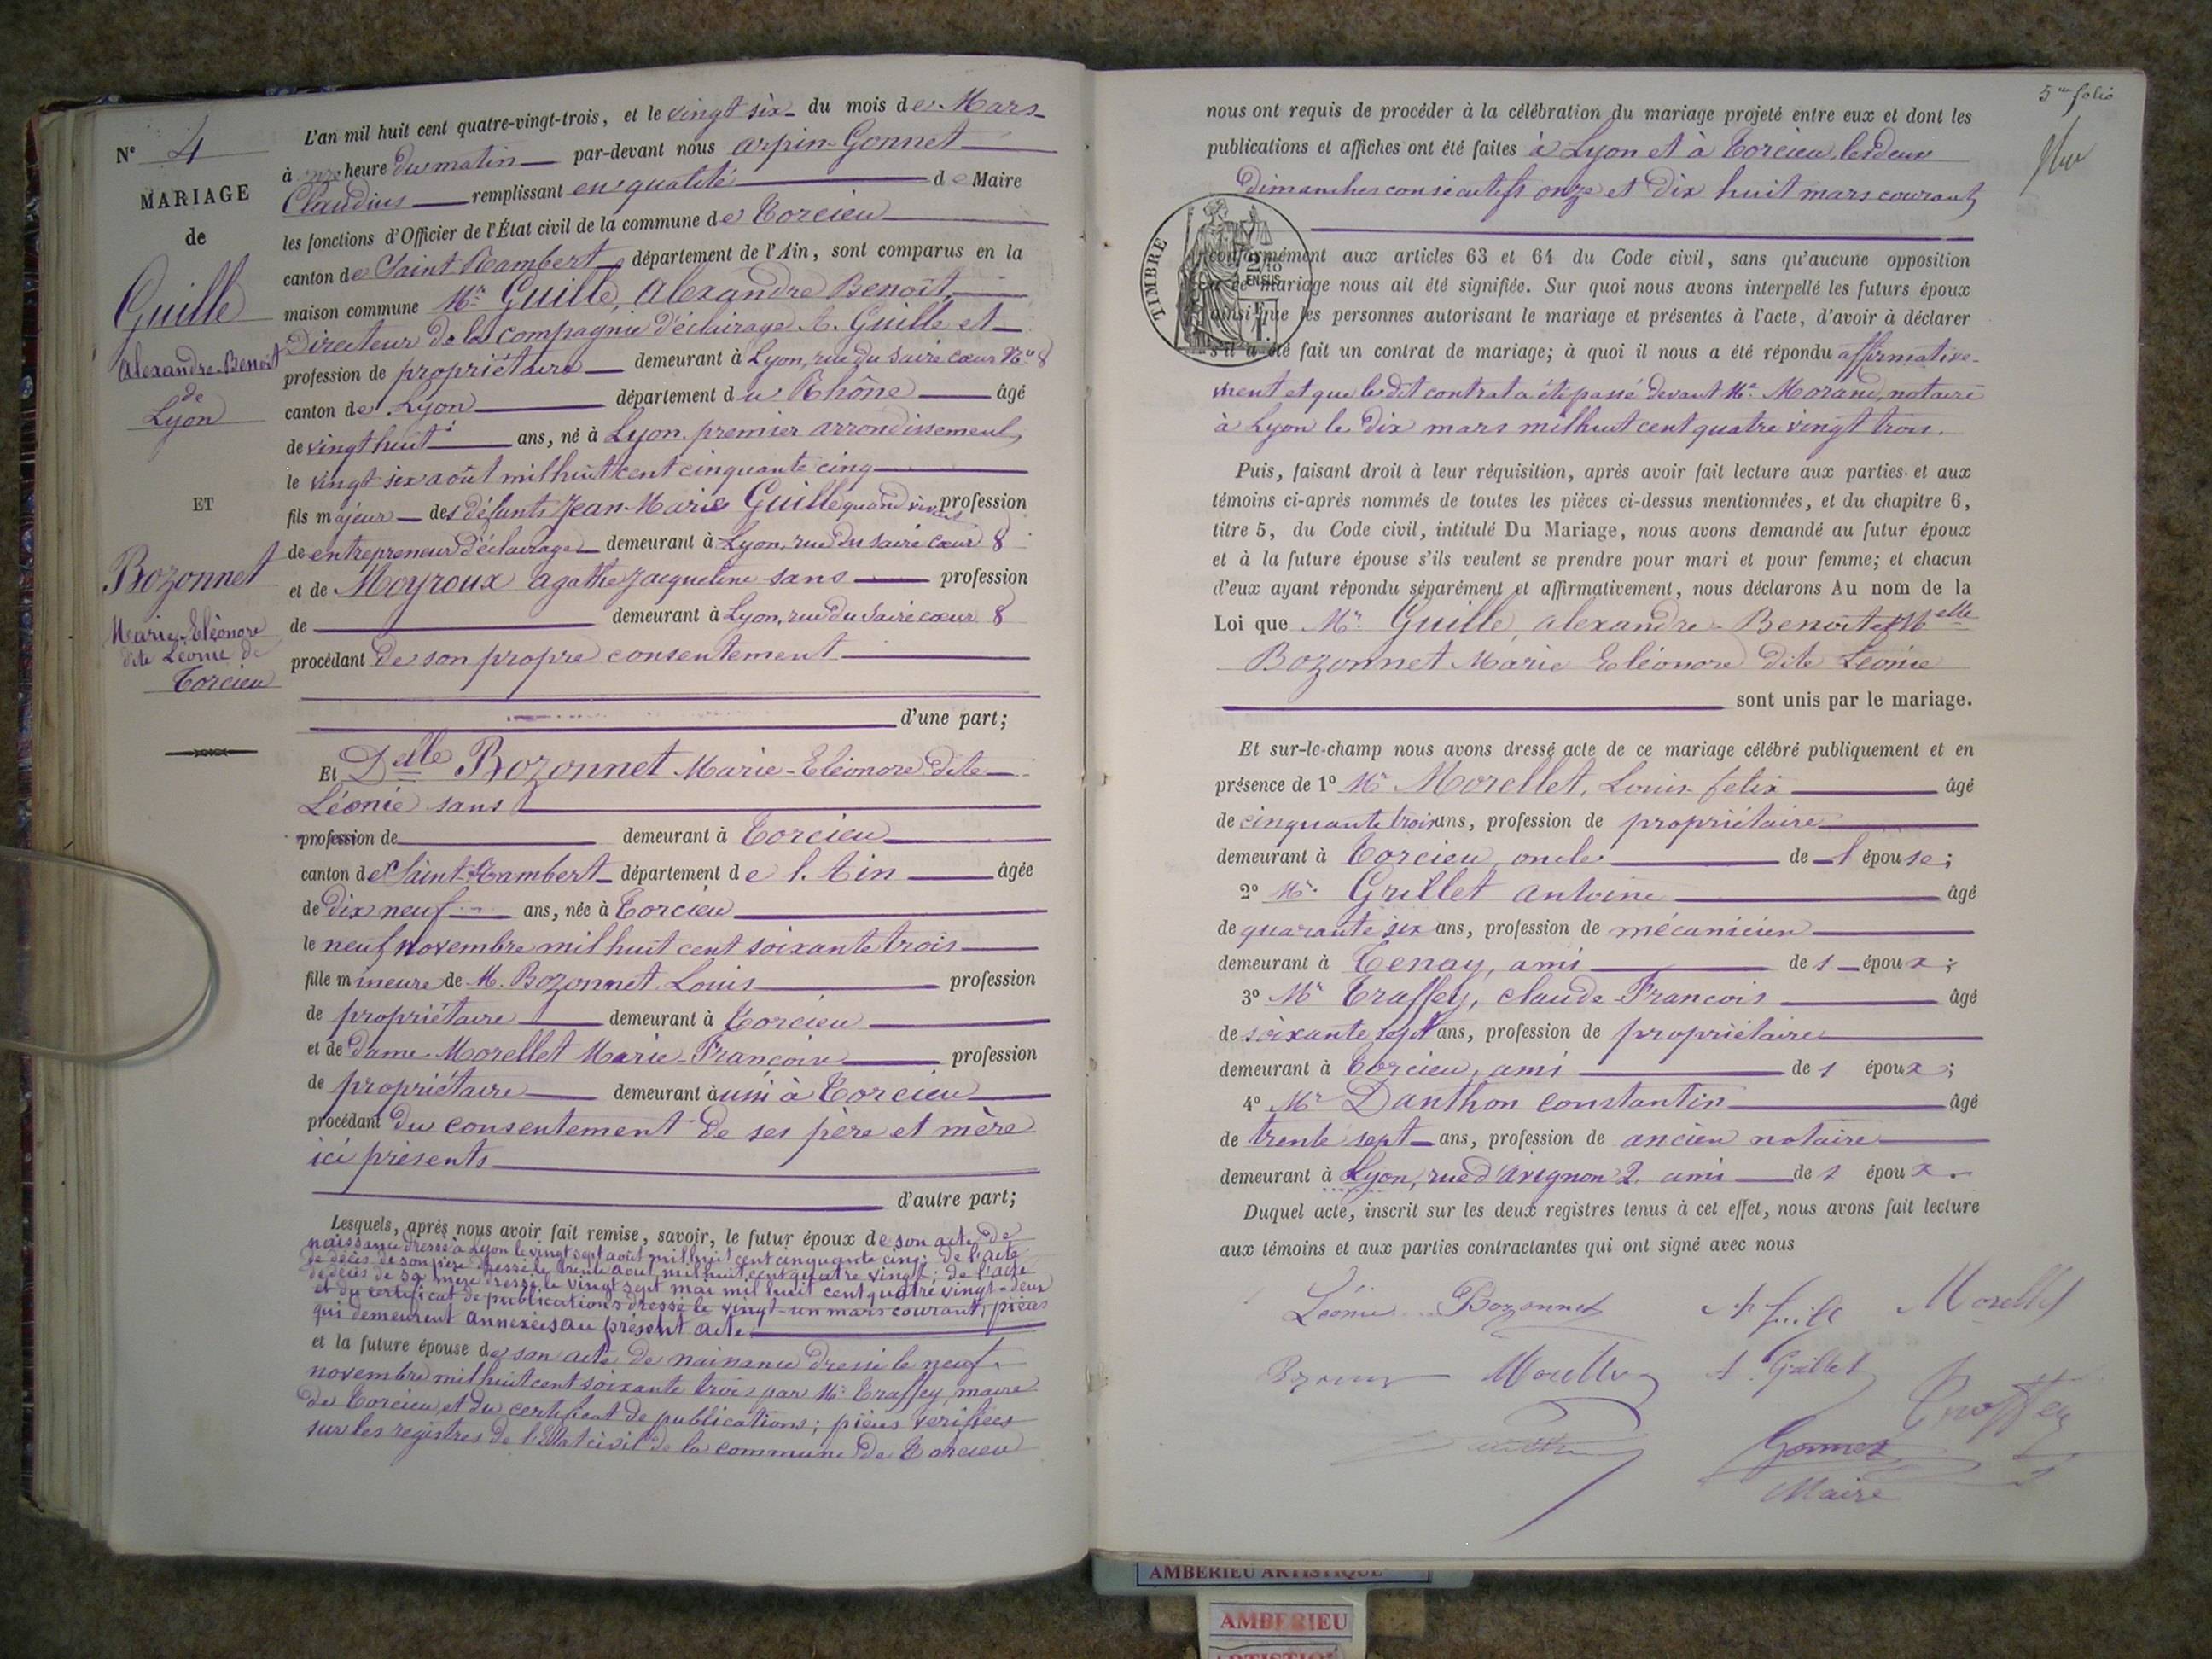 N° 4
MARIAGE
de
Guille
Alexandre-Benoit
de
Lyon
ET
Bozonnet
Marie-Eléonore
dite Léonie de
Torcieu
L'an mil huit cent quatre-vingt-trois, et le vingt six du mois de Mars
à onze heure du matin par-devant nous arpin-Gonnet
Claudius remplissant en qualité de Maire
les fonctions d'Officier de l'État civil de la commune de Torcieu
canton de Saint Rambert département de l'Ain, sont comparus en la
maison commune Mr Guille, Alexandre Benoît,
Directeur de la compagnie d'éclairage A. Guille et
profession de propriétaire demeurant à Lyon, rue du Sacré cœur No 8
canton de Lyon département du Rhône âgé
de vingt huit ans, né à Lyon premier arrondissement,
le vingt six août mil huit cent cinquante cinq
fils majeur des défunts Jean-Marie Guille quand vivait profession
de entrepreneur d'éclairage demeurant à Lyon, rue du Sacré cœur 8
et de Moyroux agathe Jacqueline sans profession
de demeurant à Lyon, rue du Sacré cœur 8
procédant de son propre consentement
d'une part;
Et Delle Bozonnet Marie-Eléonore dite
Léonie sans
profession de demeurant à Torcieu
canton de Saint-Rambert département de l'Ain âgée
de dix neuf ans, née à Torcieu
le neuf novembre mil huit cent soixante trois
fille mineure de M. Bozonnet Louis profession
de propriétaire demeurant à Torcieu
et de dame Morellet Marie-Françoise profession
de propriétaire demeurant aussi à Torcieu
procédant du consentement de ses père et mère
ici présents
d'autre part;
Lesquels, après nous avoir fait remise, savoir, le futur époux de son acte de
naissance dressé à Lyon le vingt sept août mil huit cent cinquante cinq; de l'acte
de décès de son père dressé le trente août mil huit cent quatre vingt; de l'acte
de décès de sa mère dressé le vingt sept mai mil huit cent quatre vingt-deux
et du certificat de publications dressé le vingt-un mars courant; pièces
qui demeurent annexées au présent acte
et la future épouse de son acte de naissance dressé le neuf
novembre mil huit cent soixante trois par Mr Traffey, maire
de Torcieu, et du certificat de publications; pièces vérifiées
sur les registres de l'Etat civil de la commune de Torcieu
5me folio
nous ont requis de procéder à la célébration du mariage projeté entre eux et dont les
publications et affiches ont été faites à Lyon et à Torcieu, les deux
dimanches consécutifs onze et dix huit mars courant,
TIMBRE
2/10
EN SUS
conformément aux articles 63 et 64 du Code civil, sans qu'aucune opposition
à ce mariage nous ait été signifiée. Sur quoi nous avons interpellé les futurs époux
ainsi que les personnes autorisant le mariage et présentes à l'acte, d'avoir à déclarer
s'il a été fait un contrat de mariage; à quoi il nous a été répondu affirmative-
ment et que le dit contrat a été passé devant Me Morand, notaire
à Lyon le dix mars mil huit cent quatre vingt trois.
Puis, faisant droit à leur réquisition, après avoir fait lecture aux parties et aux
témoins ci-après nommés de toutes les pièces ci-dessus mentionnées, et du chapitre 6,
titre 5, du Code civil, intitulé Du Mariage, nous avons demandé au futur époux
et à la future épouse s'ils veulent se prendre pour mari et pour femme; et chacun
d'eux ayant répondu séparément et affirmativement, nous déclarons Au nom de la
Loi que Mr Guille, alexandre-Benoît et Melle
Bozonnet Marie Eléonore dite Léonie
sont unis par le mariage.
Et sur-le-champ nous avons dressé acte de ce mariage célébré publiquement et en
présence de 1° Mr Morellet, Louis-felix âgé
de cinquante trois ans, profession de propriétaire
demeurant à Torcieu, oncle de l'épouse;
2° Mr Grillet antoine âgé
de quarante six ans, profession de mécanicien
demeurant à Tenay, ami de l époux;
3° Mr Traffey, claude-Francois âgé
de soixante sept ans, profession de propriétaire
demeurant à Torcieu, ami de l époux;
4° Mr Danthon constantin âgé
de trente sept ans, profession de ancien notaire
demeurant à Lyon, rue d'avignon 2 ami de l époux.
Duquel acte, inscrit sur les deux registres tenus à cet effet, nous avons fait lecture
aux témoins et aux parties contractantes qui ont signé avec nous
Léonie Bozonnet Morellet
Morellet A. Grillet
Traffey
Gonnet
Maire
AMBERIEU ARTISTIQUE
AMBERIEU
ARTISTIQUE